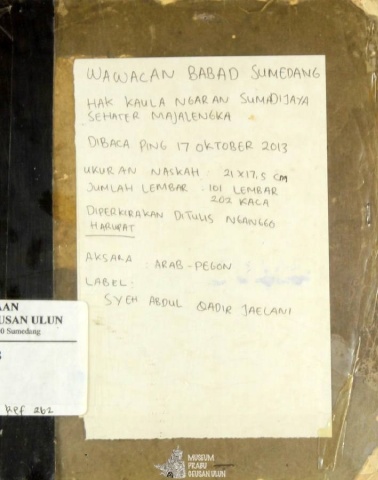 WAWACAN BABAD SUMEDANG
HAK KAULA NGARAN SUMADIJAYA
SEHATER MAJALENGKA
DIBACA PING 17 OKTOBER 2013
UKURAN NASKAH : 21X17,5 CM
JUMLAH LEMBAR : 101 LEMBAR
202 KACA
DIPERKIRAKAN DITULIS NGANGGO
HARUPAT
AKSARA : ARAB-PEGON
LABEL :
SYEH ABDUL QADIR JAELANI
AAN
EUSAN ULUN
0 Sumedang
262
MUSEUM
PRABU
GEUSAN ULUN